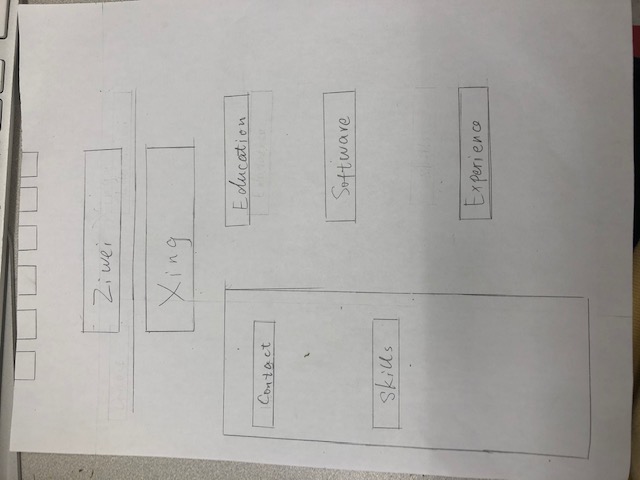 Ziwei
Xing
Contact
Skills
Education
Software
Experience